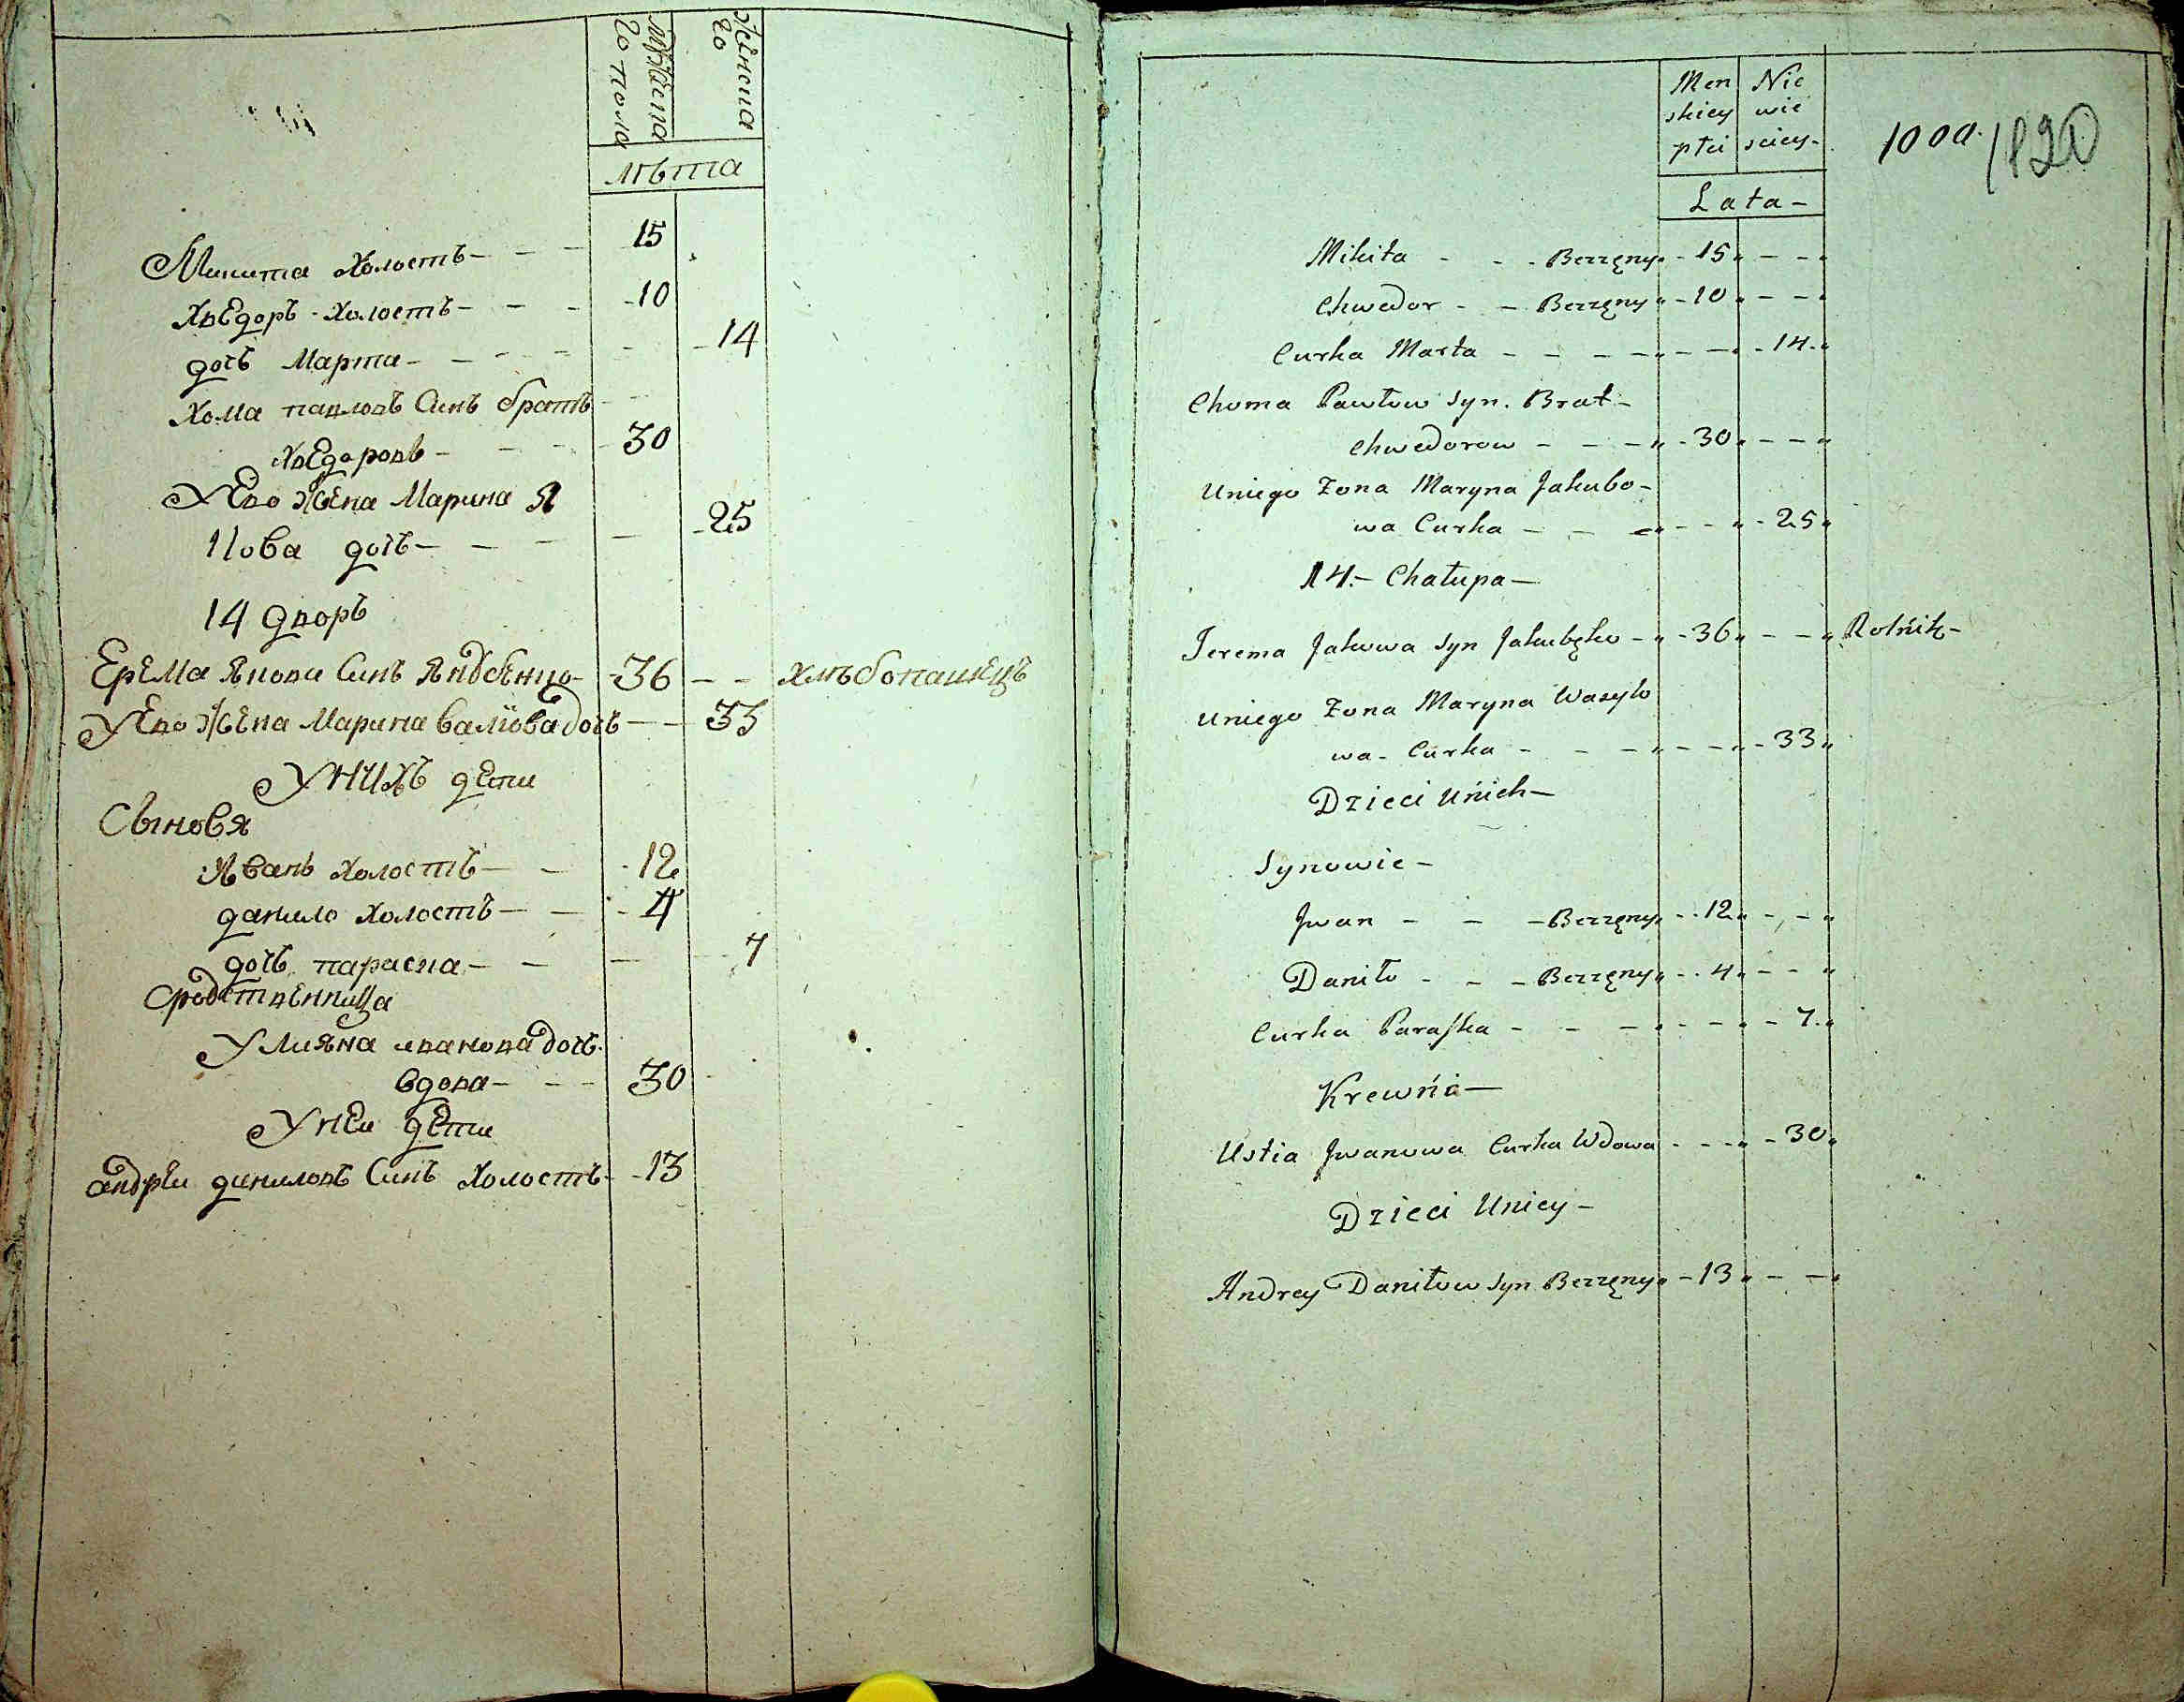 мужеска
го пола
женска
го
лѣта
Микита холостъ - - - 15
хвЕдоръ - холостъ - - - 10
дочъ Марта - - - - - 14
Хома павловъ Синъ братъ
хвЕдоровъ - - - 30
УЕво жЕна Марина Я
кова дочъ - - - - 25
14 дворъ
ЕрЕма Якови Синъ - 36 - - хлѣбопашЕцъ
УЕво ЖЕна Марина Васылова дочъ - - 33
УНИХЪ дЕти
Сыновя
Иванъ холостъ - - - 12
данило холостъ - - - 4
дочъ параска - - - 7
СродствЕнница
Улияна иванова дочъ
вдова - - - 30
УнЕи дЕти
андрЕи даниловъ Синъ холостъ - 13
Men Nie
skiey wie
płci sciey -
Lata -
100a. 1820
Mikita - - - Bezzęny " - 15 " - - "
Chwedor - - Bezzęny " - 10 " - - "
Curka Marta - - - - " - - " - 14 - "
Choma Pawłow Syn. Brat -
Chwedorow - - - " - 30 " - - "
Uniego Zona Maryna Jakubo -
wa Curka - - - " - - " - 25 "
14. - Chałupa -
Jerema Jakuwa Syn Jakubęko - " - 36 " - - " Rolnik -
Uniego Zona Maryna Wasylo
wa - Curka - - - " - - " - 33 "
Dzieci Unich -
Synowie -
Jwan - - - Bezzęny " - 12 " - - "
Daniło - - - Bezzęny " - 4 " - - "
Curka Paraska - - - " - - " - 7 - "
Krewna -
Ustia Jwanowa Curka Wdowa - - - " - 30 "
Dzieci Uniey -
Andrey Daniłow Syn Bezzęny " - 13 " - - "